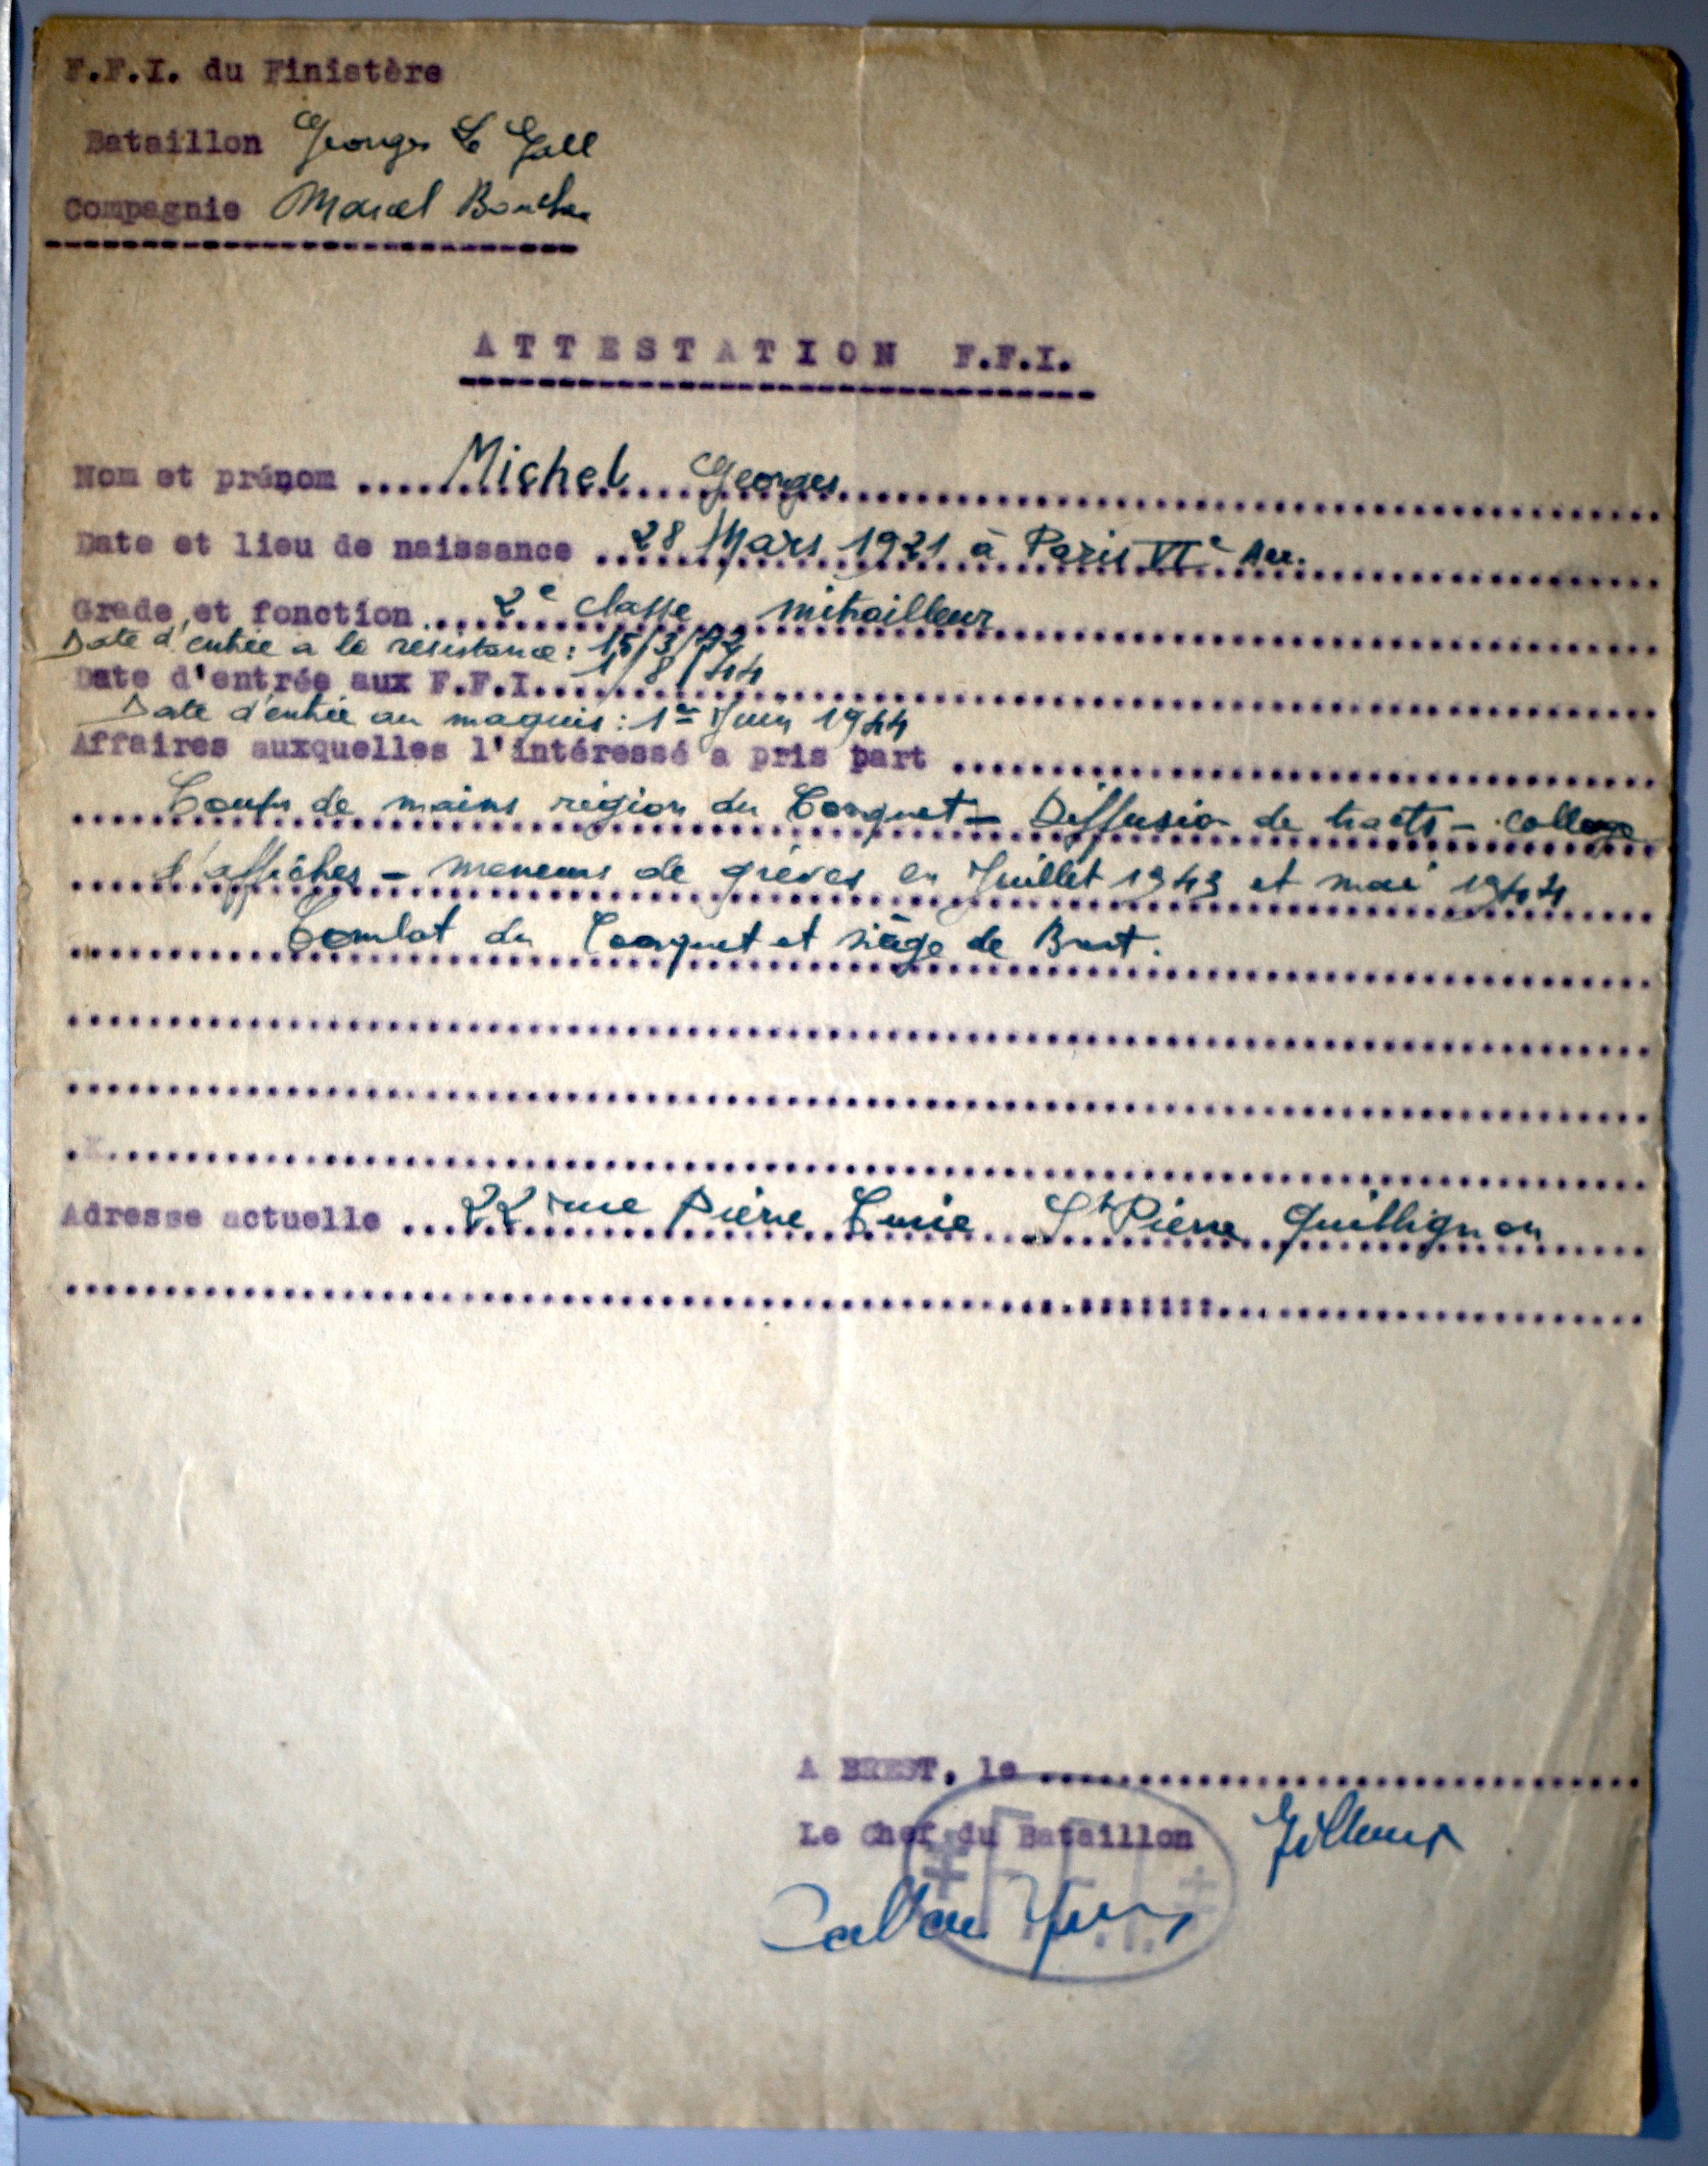 F.F.I. du Finistère
Bataillon Georges Le Gall
Compagnie Marcel
ATTESTATION F.F.I.
Nom et prénom .... Michel Georges
Date et lieu de naissance ... 28 Mars 1921 à Paris VIe Arr.
Grade et fonction .... 2e classe mitrailleur
Date d'entrée a la résistance : 15/3/42
Date d'entrée aux F.F.I. 1/8/44
Date d'entrée au maquis : 1er Juin 1944
Affaires auxquelles l'intéressé a pris part
Coups de mains région du Conquet - Diffusion de tracts - collage
d'affiches - meneurs de grèves en Juillet 1943 et mai 1944
Combat du Conquet et siège de Brest.
Adresse actuelle ... 22 rue Pierre Curie St Pierre Quillignon
A BREST, le
Le Chef du Bataillon
F.F.I.